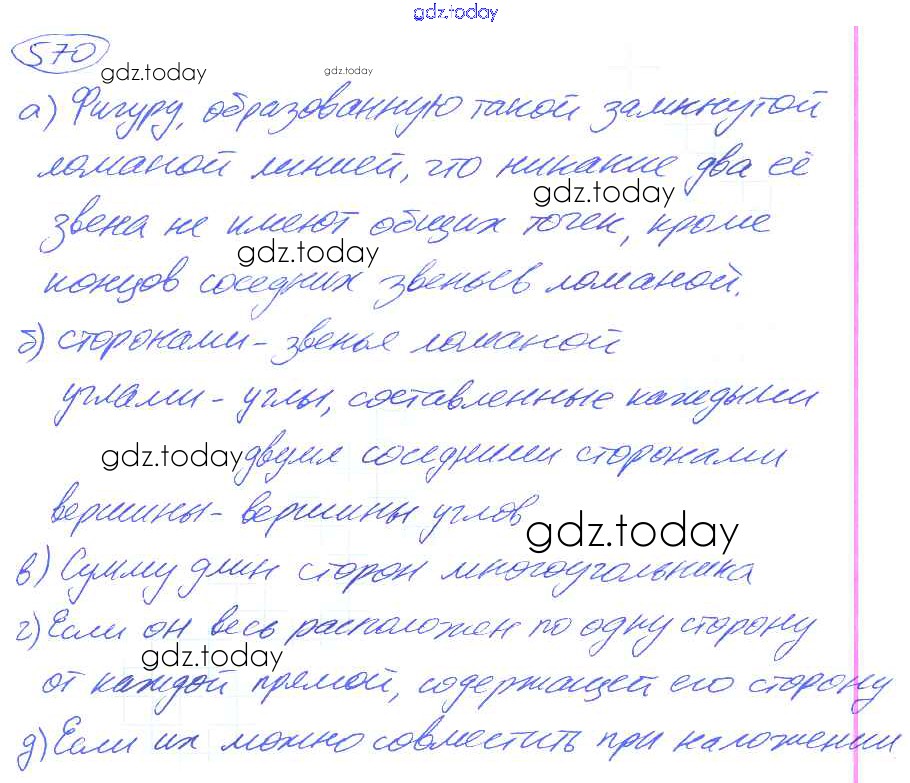 gdz.today
570
gdz.today gdz.today
а) Фигуру, образованную такой замкнутой
ломаной линией, что никакие два её
gdz.today
звена не имеют общих точек, кроме
gdz.today
концов соседних звеньев ломаной.
б) сторонами - звенья ломаной
углами - углы, составленные каждыми
gdz.today двумя соседними сторонами
вершины - вершины углов
gdz.today
в) Сумму длин сторон многоугольника
г) Если он весь расположен по одну сторону
gdz.today
от каждой прямой, содержащей его сторону
д) Если их можно совместить при наложении